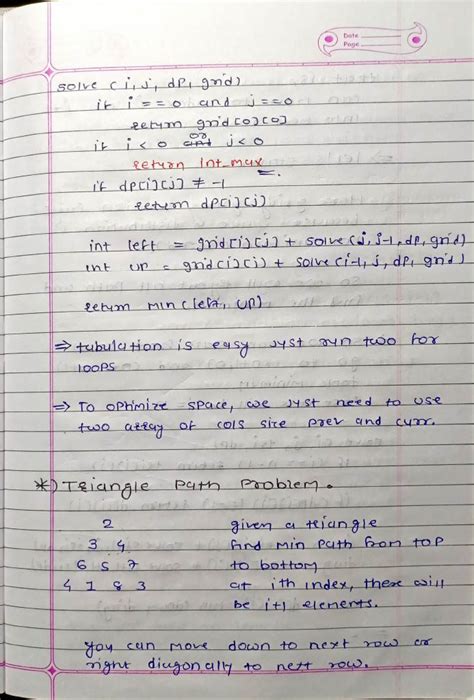 Date
Page
solve (i, j, dp, grid)
if i == 0 and j == 0
return grid[0][0]
if i < 0 or j < 0
return Int_max
if dp[i][j] ≠ -1
return dp[i][j]
int left = grid[i][j] + solve(i, j-1, dp, grid)
int up = grid[i][j] + solve(i-1, j, dp, grid)
return min(left, up)
⇒ tabulation is easy just run two for
loops
⇒ To optimize space, we just need to use
two array of cols size prev and curr.
*) Triangle Path Problem.
2 given a triangle
3 4 find min path from top
6 5 7 to bottom
4 1 8 3 at ith index, there will
be i+1 elements.
you can move down to next row or
right diagonally to next row.